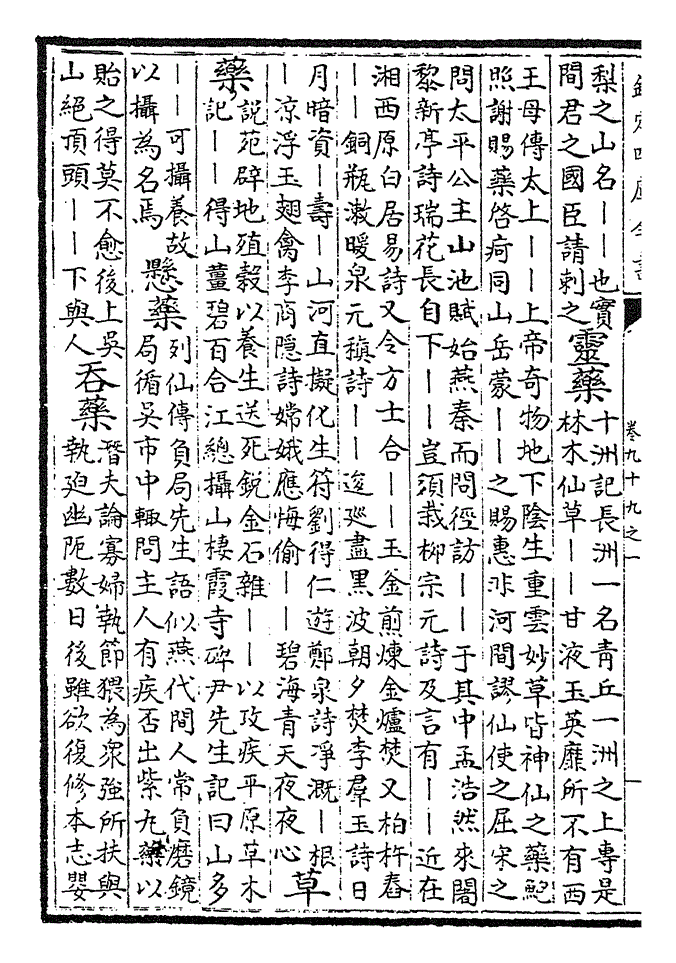 欽定四庫全書
卷九十九之一
梨之山名——也實
間君之國臣請刺之
靈藥
十洲記長洲一名青丘一洲之上專是
林木仙草——甘液玉英靡所不有西
王母傳太上——上帝奇物地下陰生重雲妙草皆神仙之藥鮑
照謝賜藥啓疴同山岳蒙——之賜惠非河間謬仙使之屈宋之
問太平公主山池賦始燕秦而問徑訪——于其中孟浩然來闍
黎新亭詩瑞花長自下——豈須栽柳宗元詩及言有——近在
湘西原白居易詩又令方士合——玉釜煎煉金爐焚又柏杵舂
——銅瓶漱暖泉元稹詩——逡廵盡黑波朝夕焚李羣玉詩日
月暗資—壽—山河直擬化生符劉得仁遊鄭泉詩凈溉—根
—涼浮玉翅禽李商隐詩嫦娥應悔偷——碧海青天夜夜心
草
藥
說苑辟地殖穀以養生送死鋭金石雜——以攻疾平原草木
記——得山薑碧百合江總攝山棲霞寺碑尹先生記曰山多
——可攝養故
以攝為名焉
懸藥
列仙傳負局先生語似燕代間人常負磨鏡
局循吳市中輙問主人有疾否出紫九藥以
貽之得莫不愈後上吳
山絕頂頭——下與人
吞藥
潛夫論寡婦執節猥為衆強所扶與
執廹幽阨數日後雖欲復修本志嬰